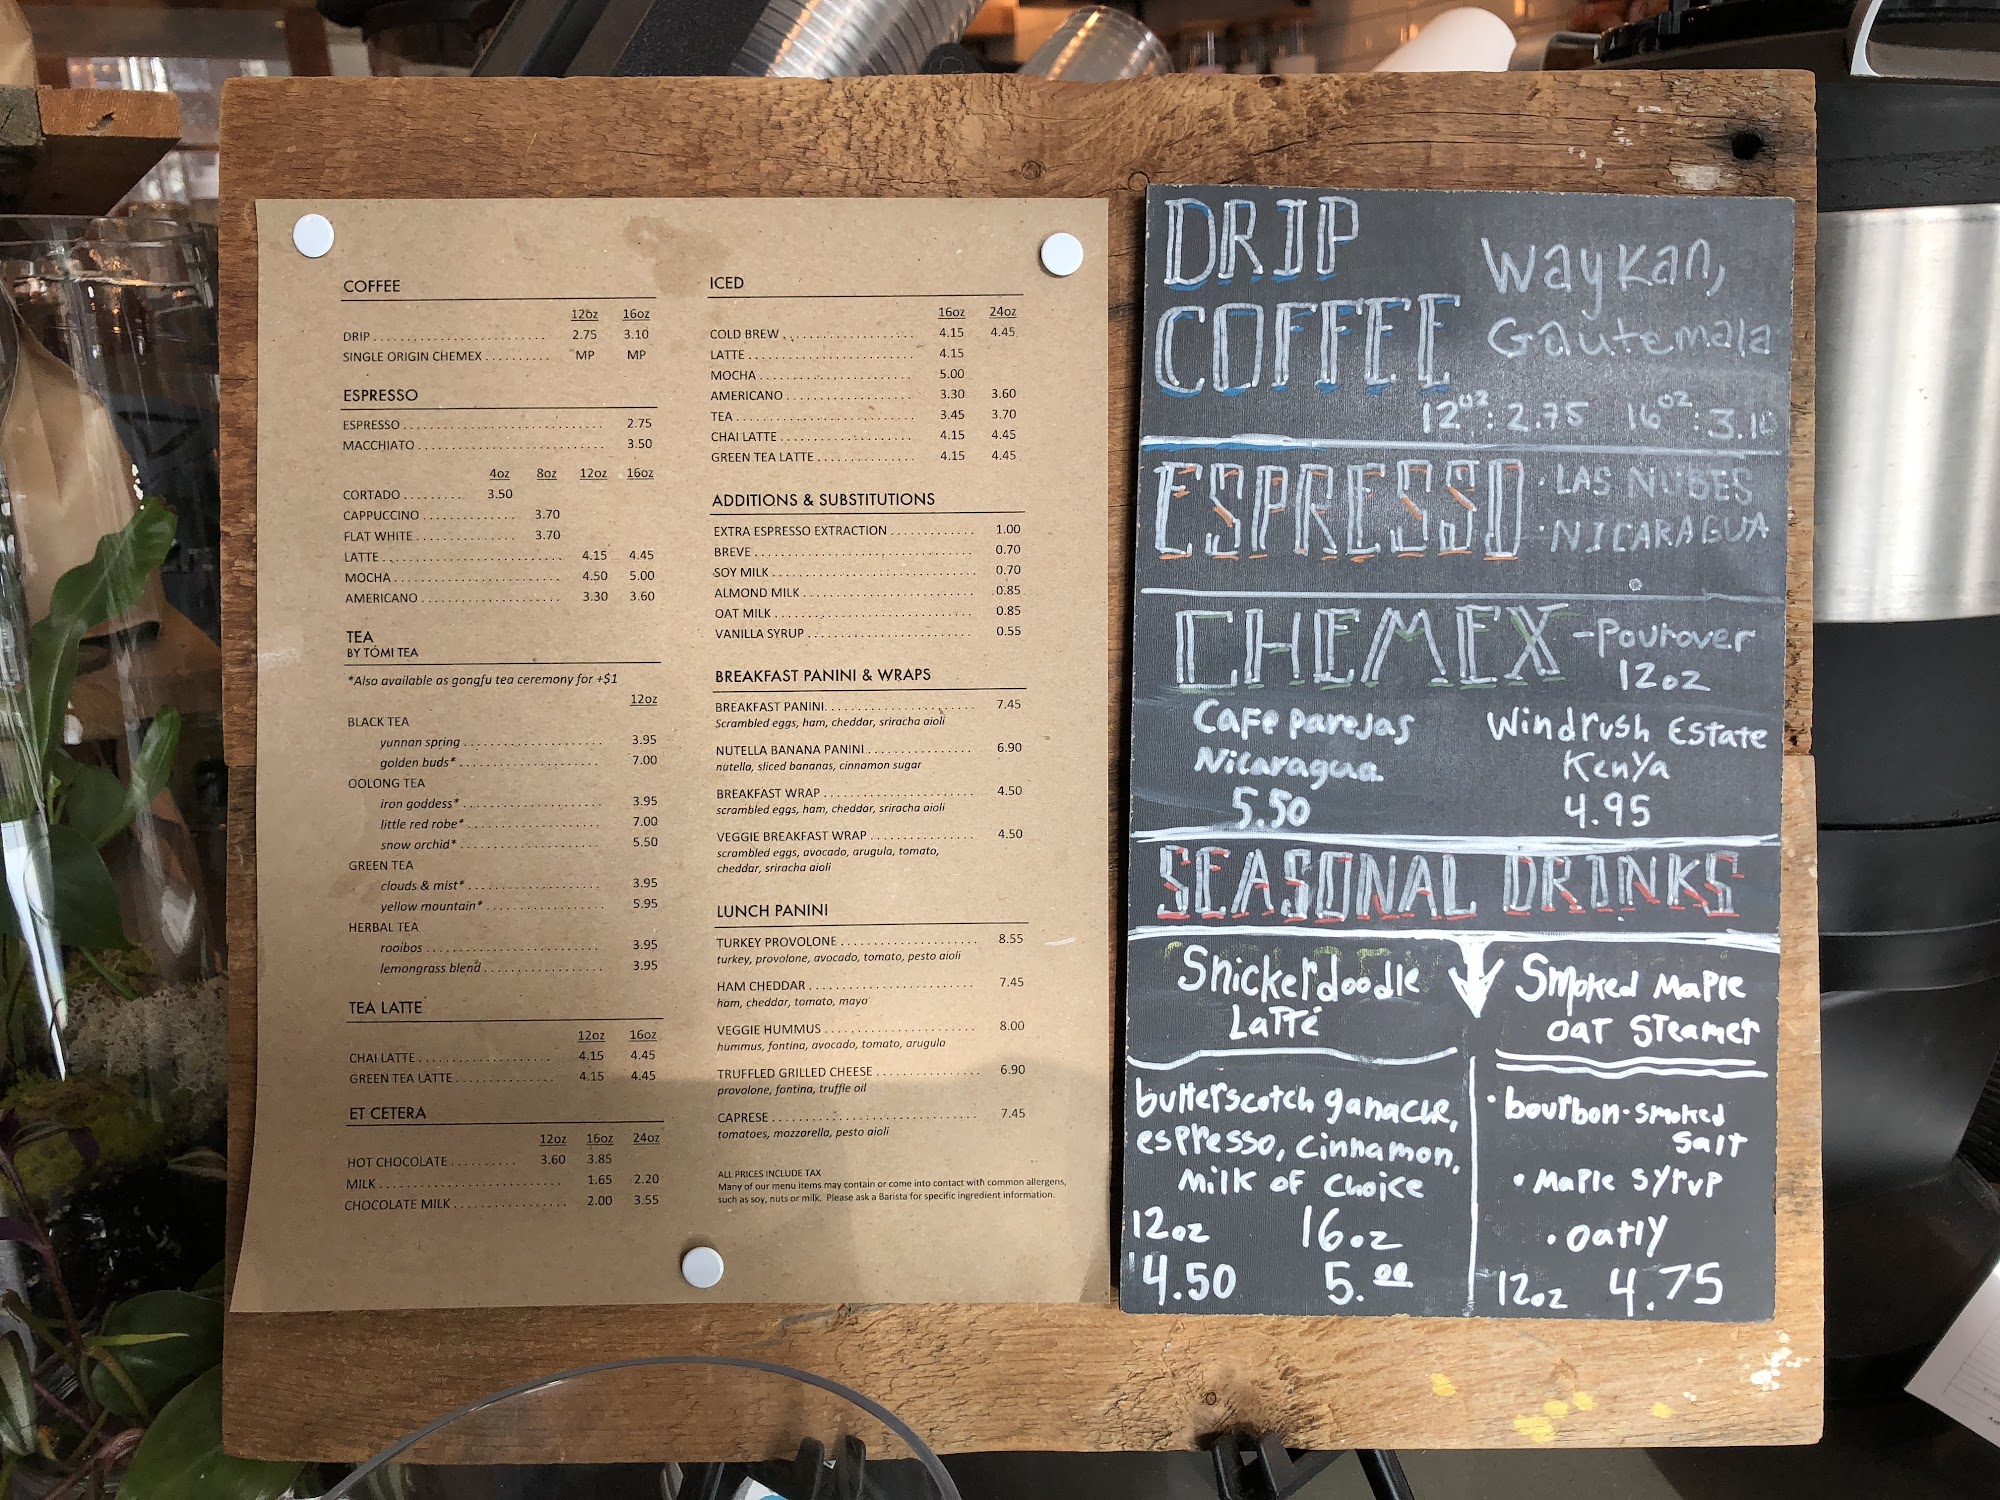 COFFEE
12oz 16oz
DRIP 2.75 3.10
SINGLE ORIGIN CHEMEX MP MP
ESPRESSO
ESPRESSO 2.75
MACCHIATO 3.50
4oz 8oz 12oz 16oz
CORTADO 3.50
CAPPUCCINO 3.70
FLAT WHITE 3.70
LATTE 4.15 4.45
MOCHA 4.50 5.00
AMERICANO 3.30 3.60
TEA
BY TÓMI TEA
*Also available as gongfu tea ceremony for +$1
12oz
BLACK TEA
yunnan spring 3.95
golden buds* 7.00
OOLONG TEA
iron goddess* 3.95
little red robe* 7.00
snow orchid* 5.50
GREEN TEA
clouds & mist* 3.95
yellow mountain* 5.95
HERBAL TEA
rooibos 3.95
lemongrass blend 3.95
TEA LATTE
12oz 16oz
CHAI LATTE 4.15 4.45
GREEN TEA LATTE 4.15 4.45
ET CETERA
12oz 16oz 24oz
HOT CHOCOLATE 3.60 3.85
MILK 1.65 2.20
CHOCOLATE MILK 2.00 3.55
ICED
16oz 24oz
COLD BREW 4.15 4.45
LATTE 4.15
MOCHA 5.00
AMERICANO 3.30 3.60
TEA 3.45 3.70
CHAI LATTE 4.15 4.45
GREEN TEA LATTE 4.15 4.45
ADDITIONS & SUBSTITUTIONS
EXTRA ESPRESSO EXTRACTION 1.00
BREVE 0.70
SOY MILK 0.70
ALMOND MILK 0.85
OAT MILK 0.85
VANILLA SYRUP 0.55
BREAKFAST PANINI & WRAPS
BREAKFAST PANINI 7.45
Scrambled eggs, ham, cheddar, sriracha aioli
NUTELLA BANANA PANINI 6.90
nutella, sliced bananas, cinnamon sugar
BREAKFAST WRAP 4.50
scrambled eggs, ham, cheddar, sriracha aioli
VEGGIE BREAKFAST WRAP 4.50
scrambled eggs, avocado, arugula, tomato,
cheddar, sriracha aioli
LUNCH PANINI
TURKEY PROVOLONE 8.55
turkey, provolone, avocado, tomato, pesto aioli
HAM CHEDDAR 7.45
ham, cheddar, tomato, mayo
VEGGIE HUMMUS 8.00
hummus, fontina, avocado, tomato, arugula
TRUFFLED GRILLED CHEESE 6.90
provolone, fontina, truffle oil
CAPRESE 7.45
tomatoes, mozzarella, pesto aioli
ALL PRICES INCLUDE TAX
Many of our menu items may contain or come into contact with common allergens,
such as soy, nuts or milk. Please ask a Barista for specific ingredient information.
DRIP
COFFEE
Waykan,
Gautemala
12oz: 2.75 16oz: 3.10
ESPRESSO
· LAS NUBES
· NICARAGUA
CHEMEX - Pourover
12oz
Cafe Parejas
Nicaragua
5.50
Windrush Estate
Kenya
4.95
SEASONAL DRINKS
Snickerdoodle
Latté
butterscotch ganache,
espresso, cinnamon,
milk of choice
12oz 16oz
4.50 5.00
Smoked Maple
Oat Steamer
· bourbon-smoked
salt
· Maple syrup
· Oatly
12oz 4.75